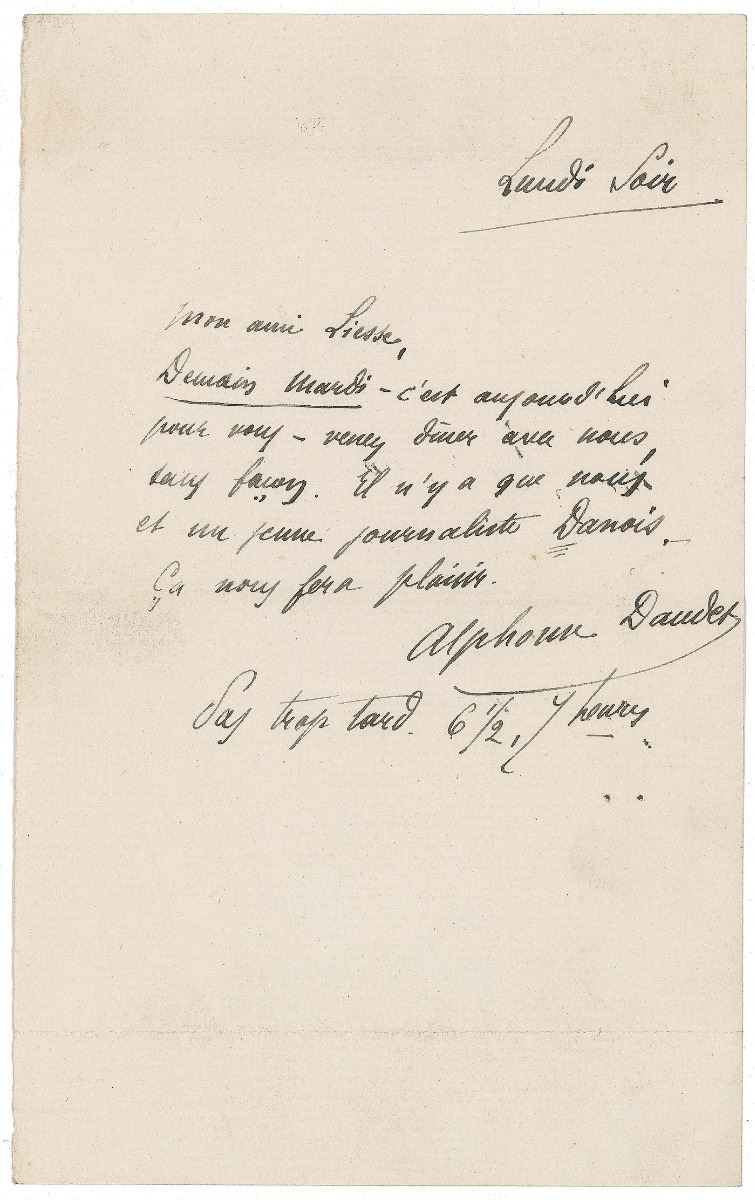 Lundi Soir
Mon ami Liesse,
Demain Mardi - c'est aujourd'hui
pour vous - venez dîner avec nous,
sans façon. Il n'y a que nous
et un jeune journaliste Danois.
Ça nous fera plaisir.
Alphonse Daudet
Pas trop tard. 6 1/2, 7 heures